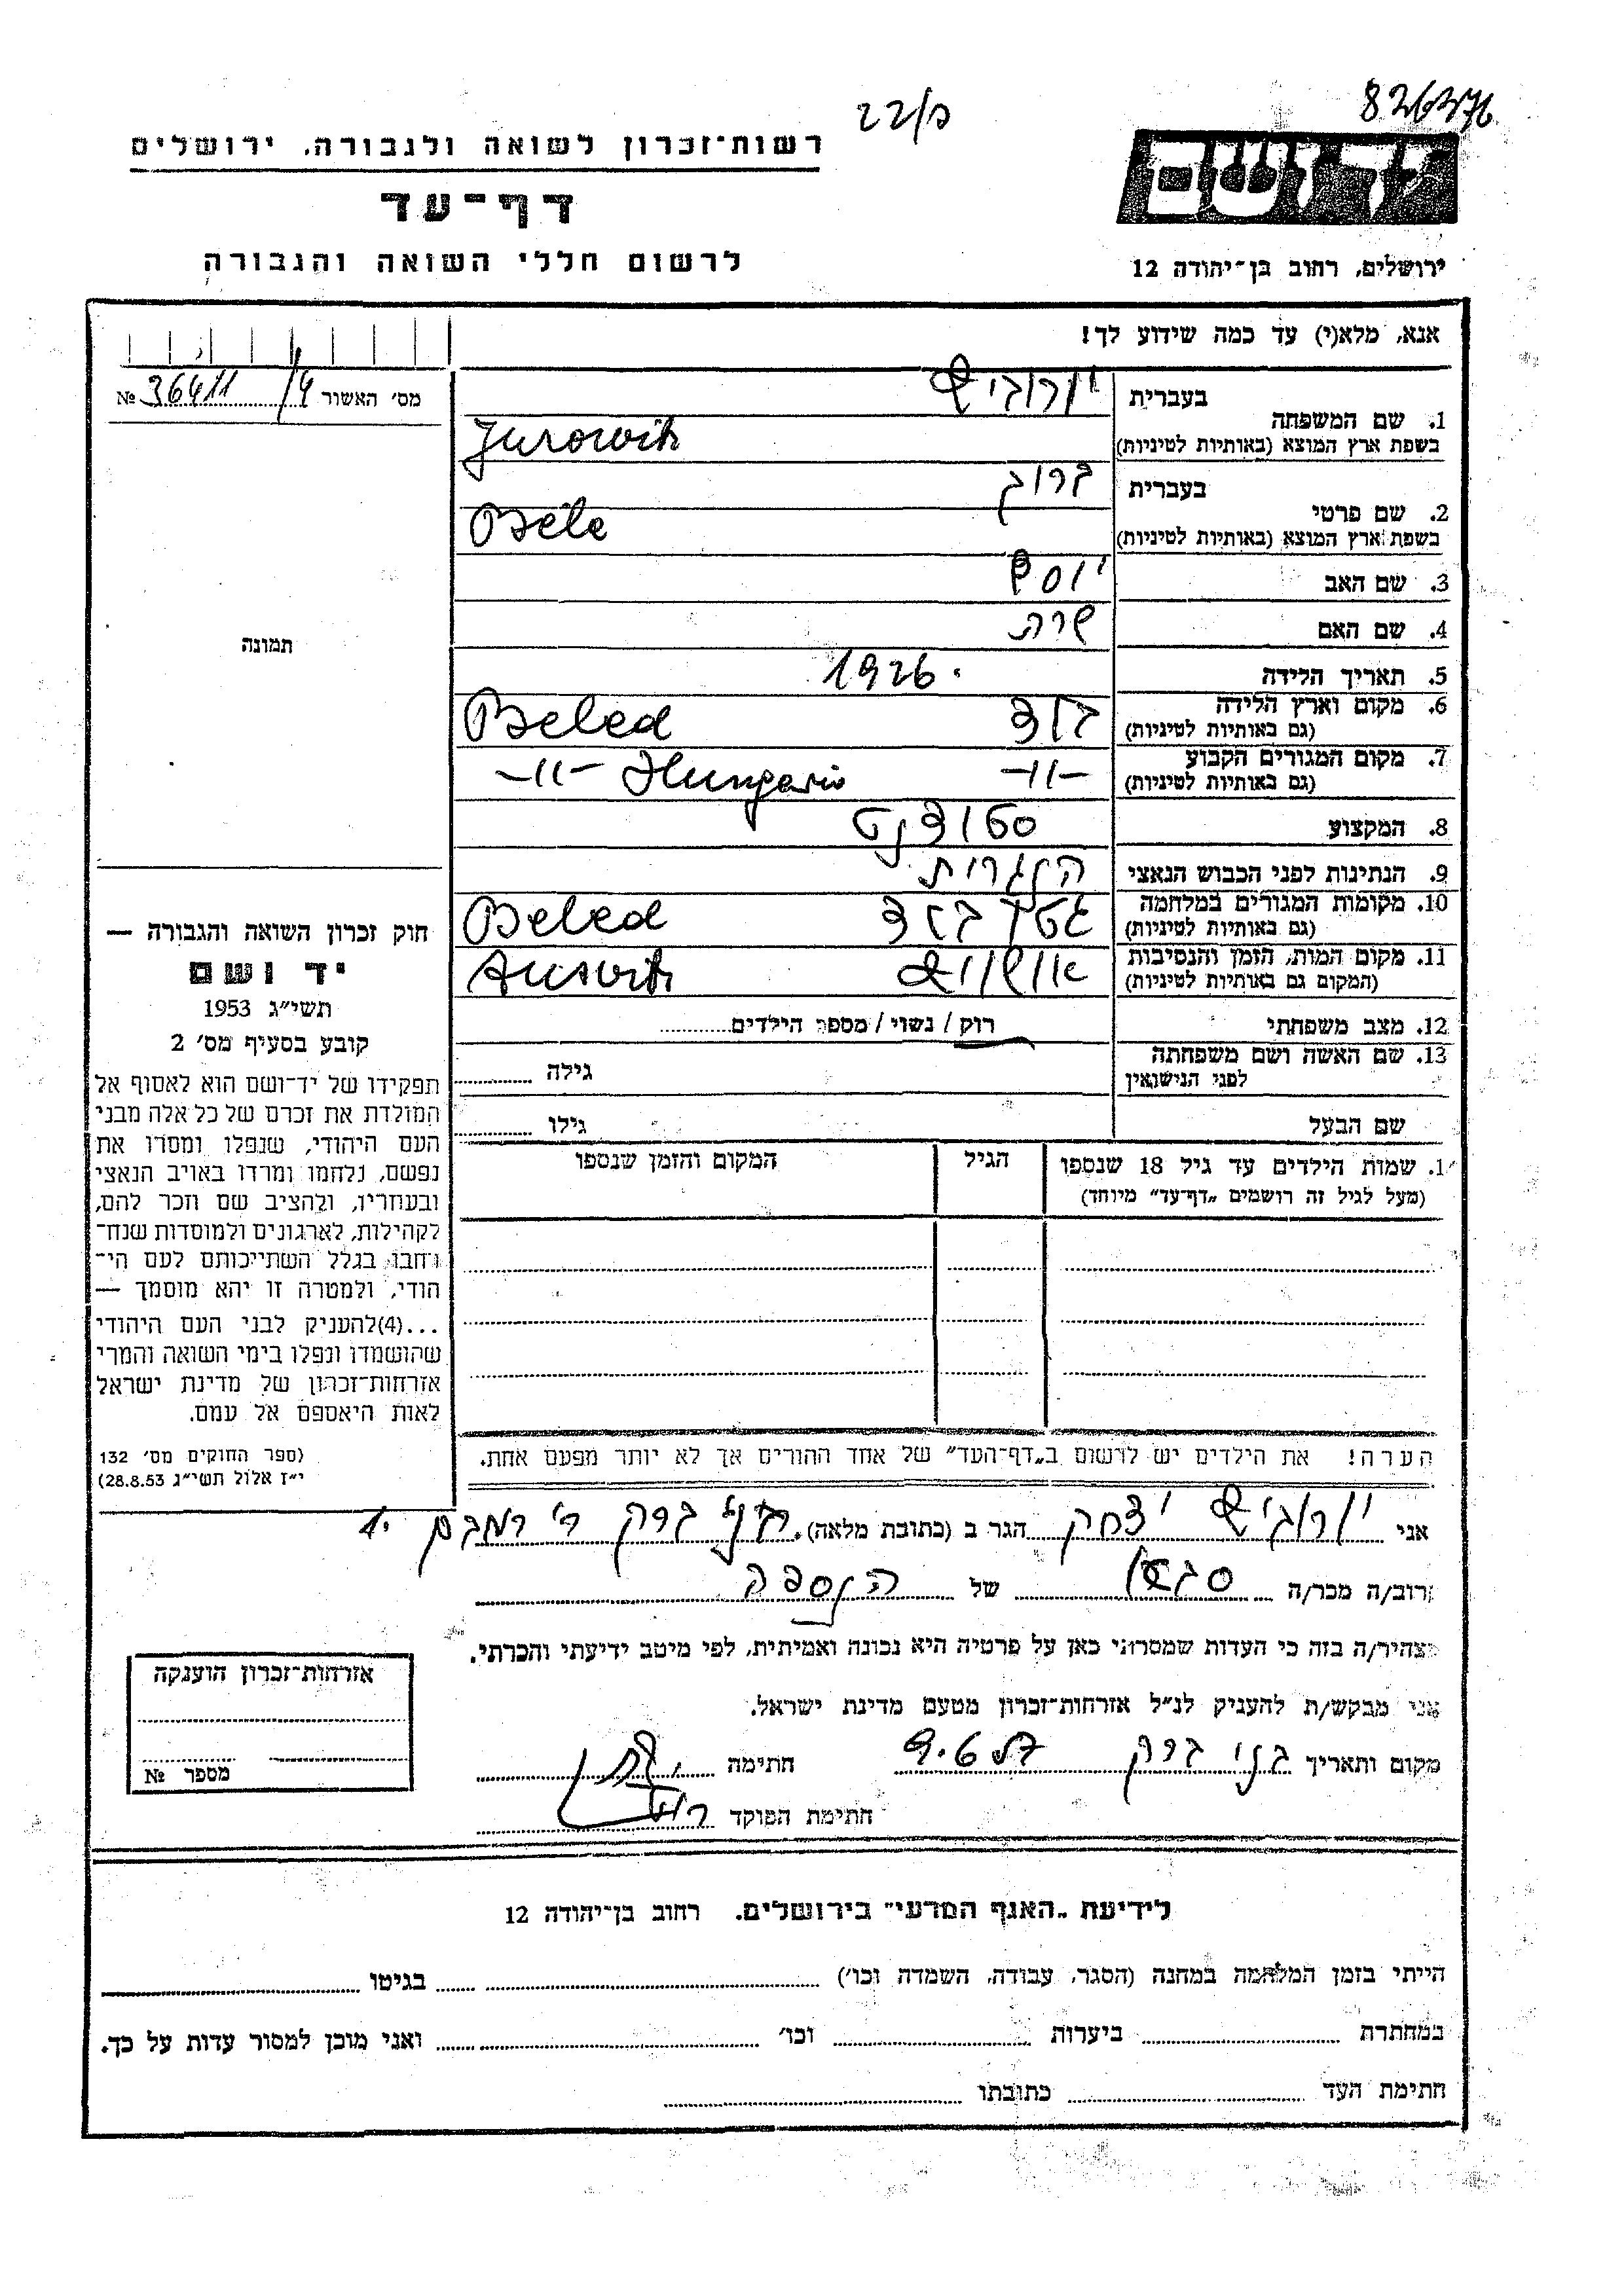 22/כ
826276
רשות־זכרון לשואה ולגבורה, ירושלים
דף־עד
לרשום חללי השואה והגבורה
יד ושם
ירושלים, רחוב בן־יהודה 12
אנא, מלא(י) עד כמה שידוע לך!
מס' האשור 4/ 36411 №
1. שם המשפחה בעברית יורוביץ
בשפת ארץ המוצא (באותיות לטיניות) Jurowith
2. שם פרטי בעברית ברוך
בשפת ארץ המוצא (באותיות לטיניות) Béle
3. שם האב יוסף
4. שם האם שרה
5. תאריך הלידה 1926
6. מקום וארץ הלידה
(גם באותיות לטיניות) Beled
7. מקום המגורים הקבוע
(גם באותיות לטיניות) –״– –״– Hungaria
8. המקצוע סטודנט
9. הנתינות לפני הכבוש הנאצי הונגרית
10. מקומות המגורים במלחמה
(גם באותיות לטיניות) Beled
11. מקום המות, הזמן והנסיבות
(המקום גם באותיות לטיניות) אושוויץ Auswith
12. מצב משפחתי רוק / נשוי / מספר הילדים
13. שם האשה ושם משפחתה
לפני הנישואין גילה
שם הבעל גילו
תמונה
חוק זכרון השואה והגבורה —
יד ושם
תשי״ג 1953
קובע בסעיף מס' 2
תפקידו של יד־ושם הוא לאסוף אל
המולדת את זכרם של כל אלה מבני
העם היהודי, שנפלו ומסרו את
נפשם, נלחמו ומרדו באויב הנאצי
ובעוזריו, ולהציב שם וזכר להם,
לקהילות, לארגונים ולמוסדות שנח־
רבו בגלל השתייכותם לעם הי־
הודי, ולמטרה זו יהא מוסמך —
...(4)להעניק לבני העם היהודי
שהושמדו ונפלו בימי השואה והמרי
אזרחות־זכרון של מדינת ישראל
לאות היאספם אל עמם.
(ספר החוקים מס' 132
י״ז אלול תשי״ג 28.8.53)
1. שמות הילדים עד גיל 18 שנספו
(מעל לגיל זה רושמים „דף־עד״ מיוחד)
הגיל
המקום והזמן שנספו
הערה! את הילדים יש לרשום ב„דף־העד״ של אחד ההורים אך לא יותר מפעם אחת.
אני יורוביץ יצחק הגר ב (כתובת מלאה) בני ברק ר' רמבם
קרוב/ה מכר/ה של הנספה
מצהיר/ה בזה כי העדות שמסרתי כאן על פרטיה היא נכונה ואמיתית, לפי מיטב ידיעתי והכרתי.
אני מבקש/ת להעניק לנ״ל אזרחות־זכרון מטעם מדינת ישראל.
מקום ותאריך בני ברק חתימה
חתימת הפוקד
אזרחות־זכרון הוענקה
מספר №
לידיעת „האגף המדעי״ בירושלים, רחוב בן־יהודה 12
הייתי בזמן המלחמה במחנה (הסגר, עבודה, השמדה וכו') בגיטו
במחתרת ביערות וכו' ואני מוכן למסור עדות על כך.
חתימת העד כתובתו